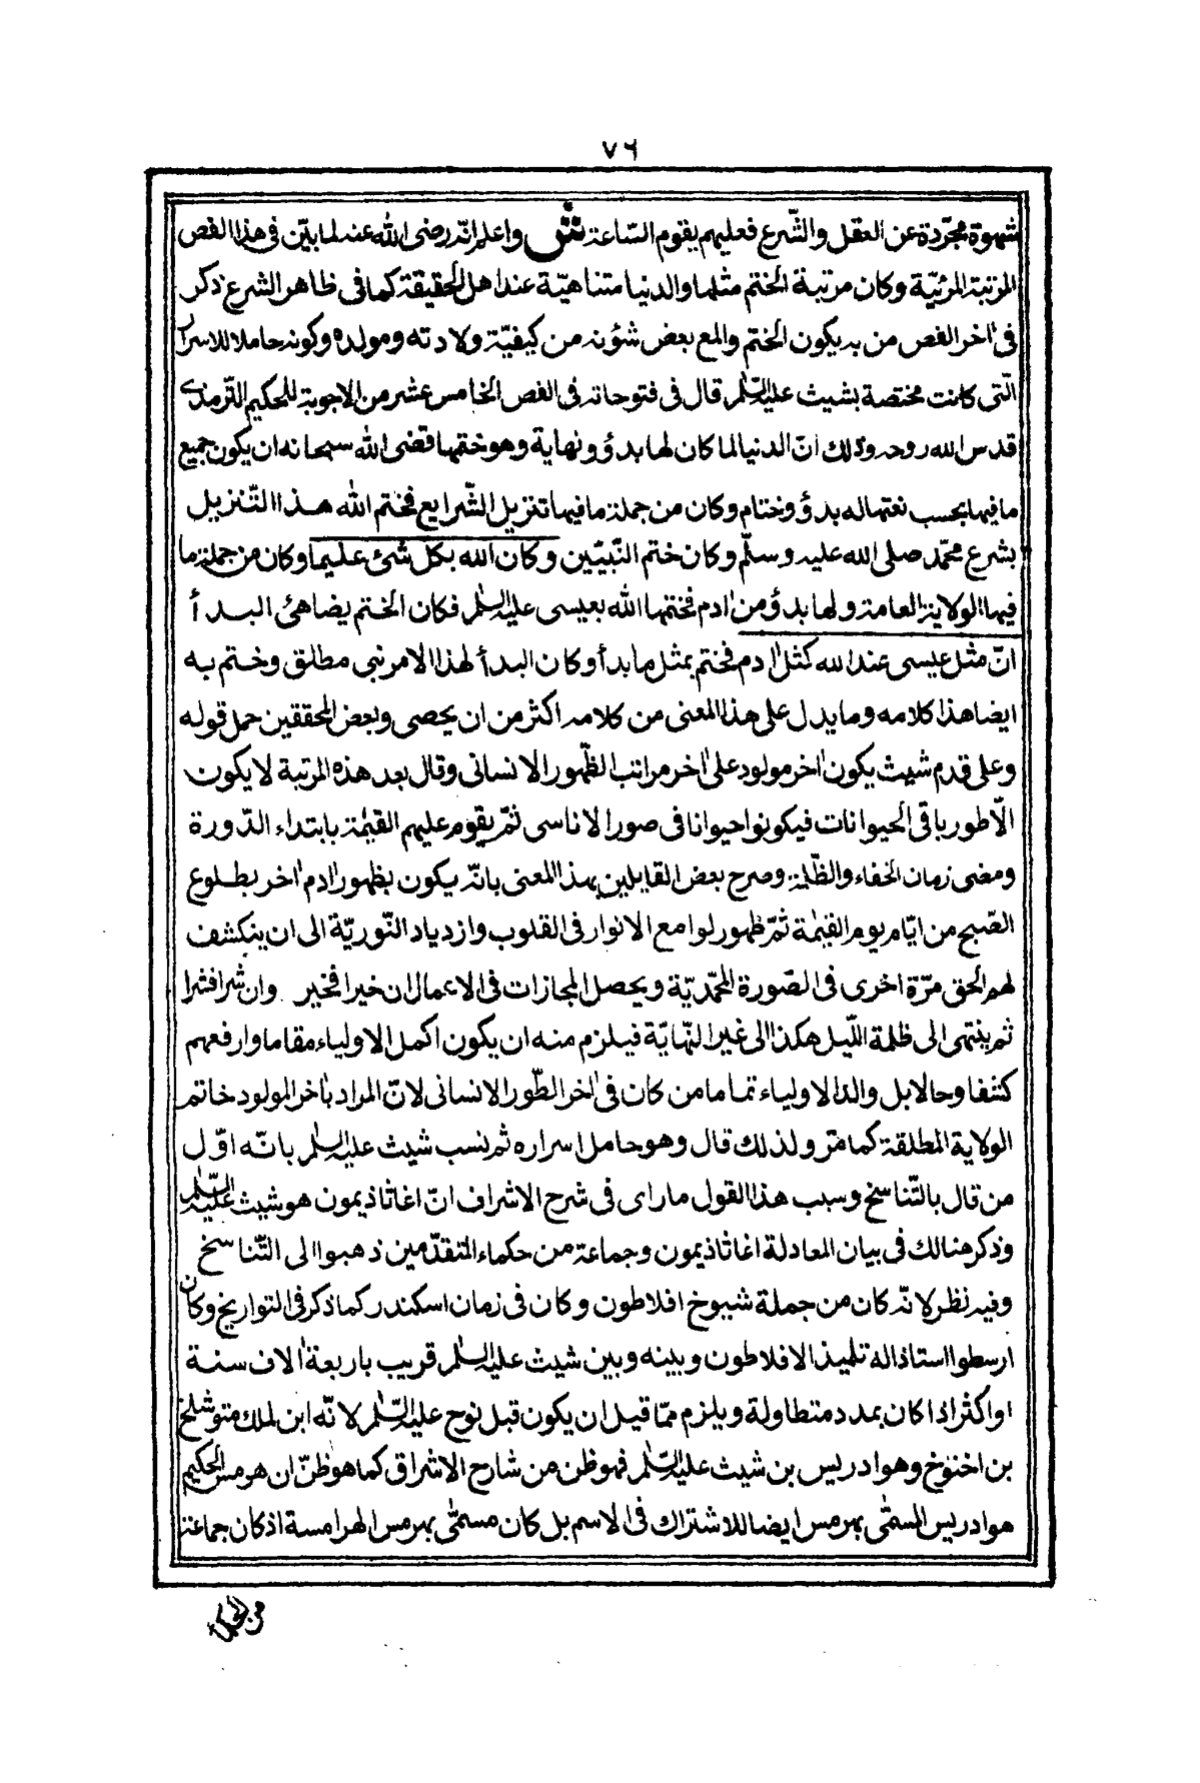 ٧٦
شهوة مجرّدة عن العقل والشّرع فعليهم يقوم السّاعة ش واعلم انّه رضى الله عنه لما بيّن فى هذا الفص
المرتبة المرئيّة وكان مرتبة الختم مثلها والدنيا متناهيّة عند اهل الحقيقة كما فى ظاهر الشرع ذكر
فى اخر الفص من به يكون الختم والمع بعض شؤنه من كيفيّة ولادته ومولده وكونه حاملا للاسرار
الّتى كانت مختصة بشيث عليه السّلم قال فى فتوحاته فى الفص الخامس عشر من الاجوبة للحكيم التّرمذى
قدس الله روحه وذلك انّ الدنيا لما كان لها بدؤ ونهاية وهو ختمها قضى الله سبحانه ان يكون جميع
ما فيها بحسب نعتها له بدؤ وختام وكان من جملة ما فيها تنزيل الشّرايع فختم الله هذا التّنزيل
بشرع محمّد صلى الله عليه وسلّم وكان ختم النّبيّين وكان الله بكل شئ عليما وكان من جملة ما
فيها الولاية العامة ولها بدؤ من ادم فختمها الله بعيسى عليه السّلم فكان الختم يضاهئ البدأ
انّ مثل عيسى عند الله كمثل ادم فختم بمثل ما بدأ وكان البدأ لهذا الامر نبى مطلق وختم به
ايضا هذا كلامه وما يدل على هذا المعنى من كلامه اكثر من ان يحصى وبعض المحققين حمل قوله
وعلى قدم شيث يكون اخر مولود على اخر مراتب الظّهور الانسانى وقال بعد هذه المرتبة لا يكون
الّا طور باقى الحيوانات فيكونوا حيوانا فى صور الاناسى ثمّ يقوم عليهم القيٰمة بابتداء الدّورة
ومضى زمان الخفاء والظّلمة وصرح بعض القايلين بهذا المعنى بانّه يكون بظهور ادم اخر بطلوع
الصّبح من ايّام يوم القيٰمة ثمّ ظهور لوامع الانوار فى القلوب وازدياد النّوريّة الى ان ينكشف
لهم الحق مرّة اخرى فى الصّورة المحمّديّة ويحصل المجازات فى الاعمال ان خيرا فخير وان شرا فشرا
ثم ينتهى الى ظلمة اللّيل هكذا الى غير النّهايّة فيلزم منه ان يكون اكمل الاولياء مقاما وارفعهم
كشفا وحالا بل والد الاولياء تماما من كان فى اخر الطّور الانسانى لانّ المراد باخر المولود خاتم
الولاية المطلقة كما مرّ ولذلك قال وهو حامل اسراره ثم نسب شيث عليه السلم بانّه اوّل
من قال بالتّناسخ وسبب هذا القول ما راى فى شرح الاشراف انّ اغاثاذيمون هو شيث عليه السّلم
وذكر هنالك فى بيان المعادلة اغاثاذيمون وجماعة من حكماء المتقدّمين ذهبوا الى التّناسخ
وفيه نظر لانّه كان من جملة شيوخ افلاطون وكان فى زمان اسكندر كما ذكر فى التواريخ وكان
ارسطوا استاذا له تلميذ الافلاطون وبينه وبين شيث عليه السّلم قريب باربعة الاف سنة
او اكثر اذا كان بمدد متطاولة ويلزم ممّا قيل ان يكون قبل نوح عليه السّلم لانّه ابن لملك متوشلخ
بن اخنوخ وهو ادريس بن شيث عليه السّلم فهو ظن من شارح الاشراق كما هو ظنّ ان هرمس الحكيم
هو ادريس المسمّى بهرمس ايضا للاشتراك فى الاسم بل كان مسمّى بهرمس الهرامسة اذ كان جماعة